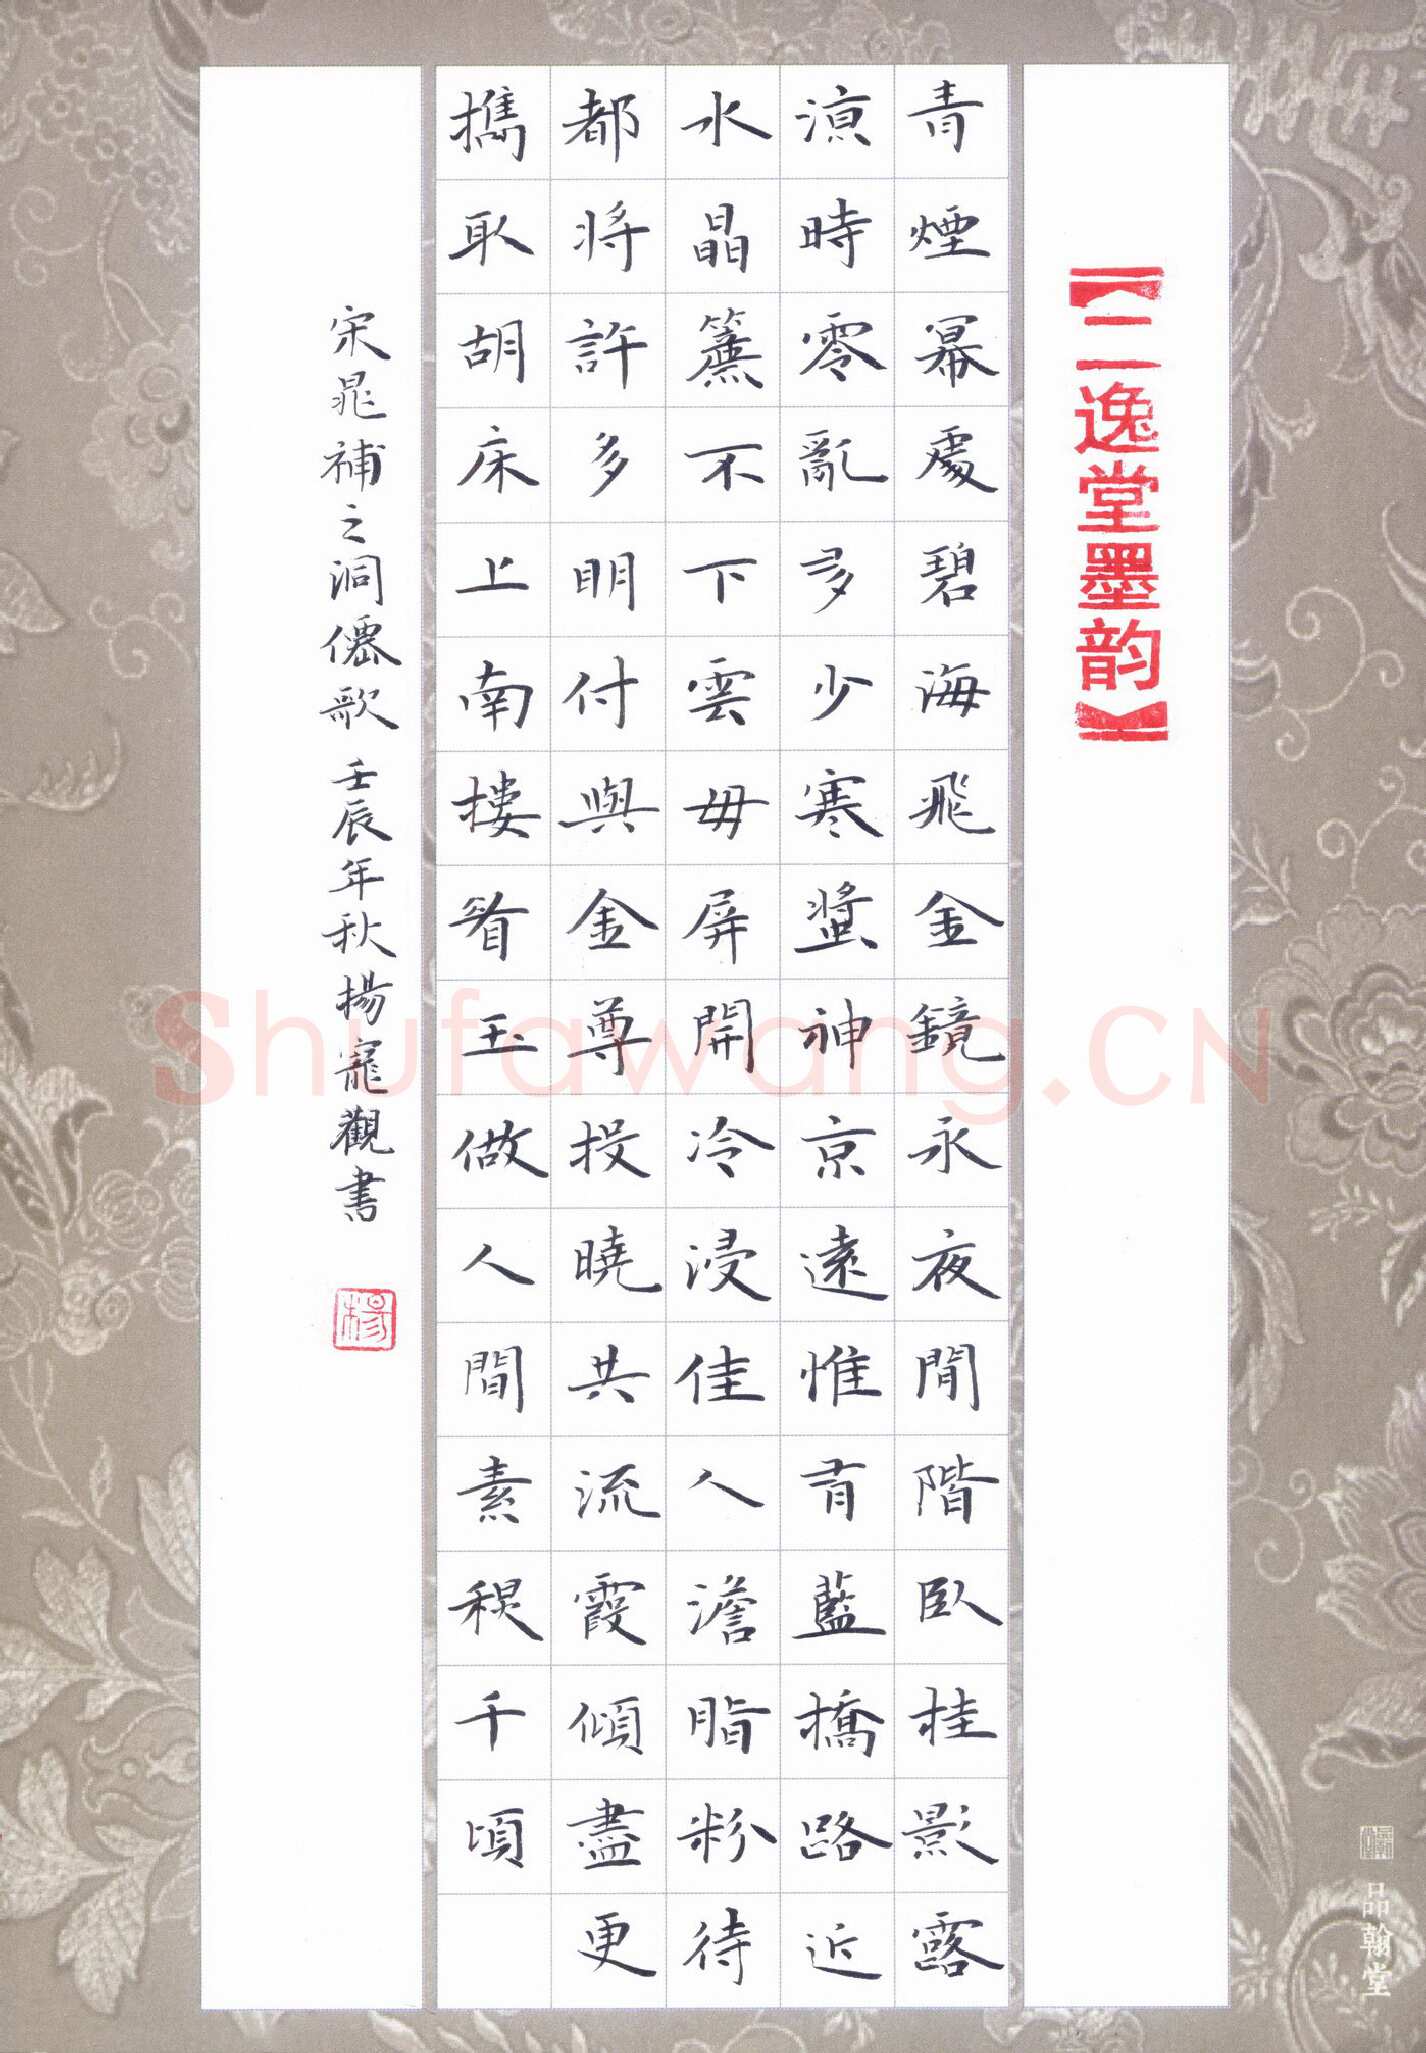 【二逸堂墨韵】
青煙冪處碧海飛金鏡永夜閒階臥桂影露
涼時零亂多少寒螿神京遠惟有藍橋路近
水晶簾不下雲母屏開冷浸佳人澹脂粉待
都將許多明付與金尊投曉共流霞傾盡更
攜取胡床上南樓看玉做人間素秋千頃
宋晁補之洞僊歌 壬辰年秋楊寵觀書
楊
品翰堂
Shufawang.CN